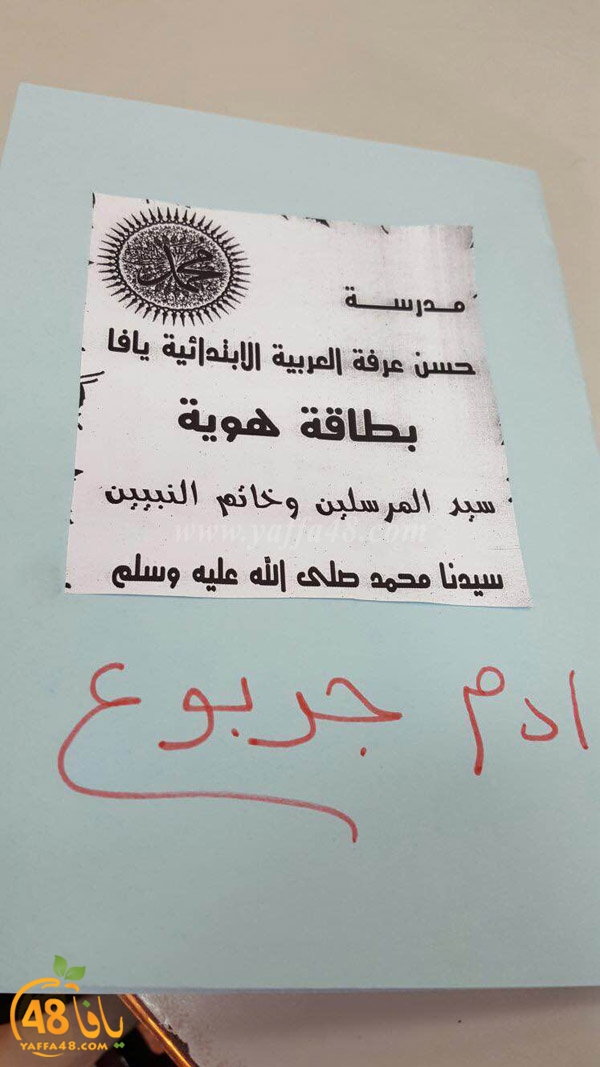 محمد
مدرسة
حسن عرفة العربية الابتدائية يافا
بطاقة هوية
سيد المرسلين وخاتم النبيين
www.yaffa48.com
سيدنا محمد صلى الله عليه وسلم
ادم جربوع
يافا 48
YAFFA48.COM